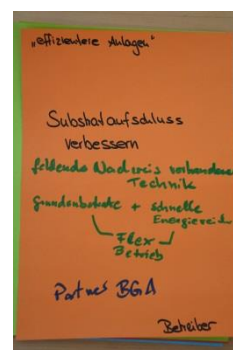 „effizientere Anlagen“
Substrataufschluss
verbessern
fehlende Nachweis vorhandene
Technik
Grundsubstrate + schnelle
Energiereich
Flex
Betrieb
Partner BGA
Betreiber